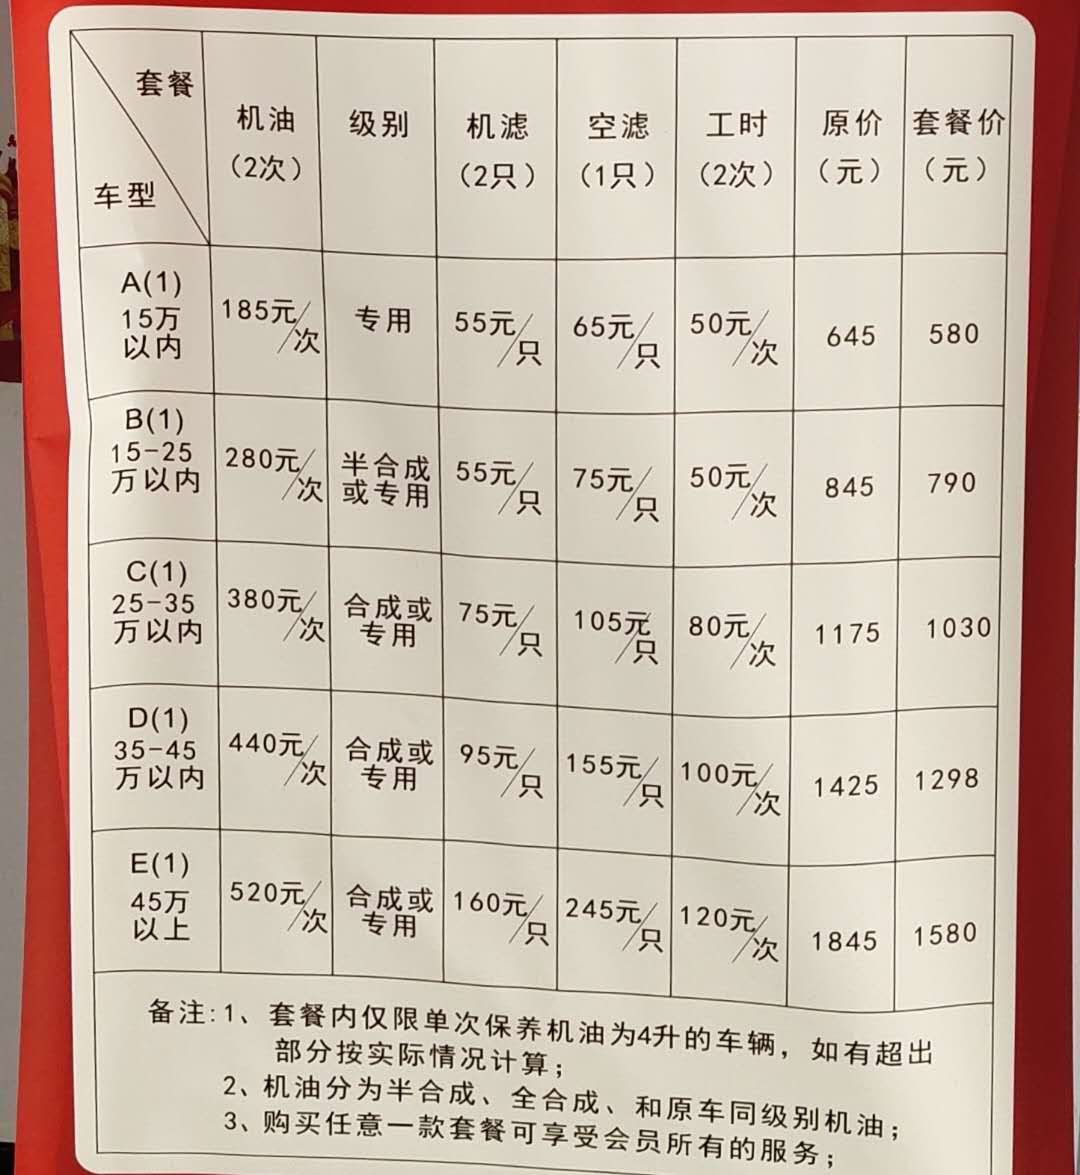 套餐
车型
机油
（2次）
级别
机滤
（2只）
空滤
（1只）
工时
（2次）
原价
（元）
套餐价
（元）
A(1)
15万
以内
185元/次
专用
55元/只
65元/只
50元/次
645
580
B(1)
15-25
万以内
280元/次
半合成
或专用
55元/只
75元/只
50元/次
845
790
C(1)
25-35
万以内
380元/次
合成或
专用
75元/只
105元/只
80元/次
1175
1030
D(1)
35-45
万以内
440元/次
合成或
专用
95元/只
155元/只
100元/次
1425
1298
E(1)
45万
以上
520元/次
合成或
专用
160元/只
245元/只
120元/次
1845
1580
备注:1、套餐内仅限单次保养机油为4升的车辆，如有超出
部分按实际情况计算；
2、机油分为半合成、全合成、和原车同级别机油；
3、购买任意一款套餐可享受会员所有的服务；